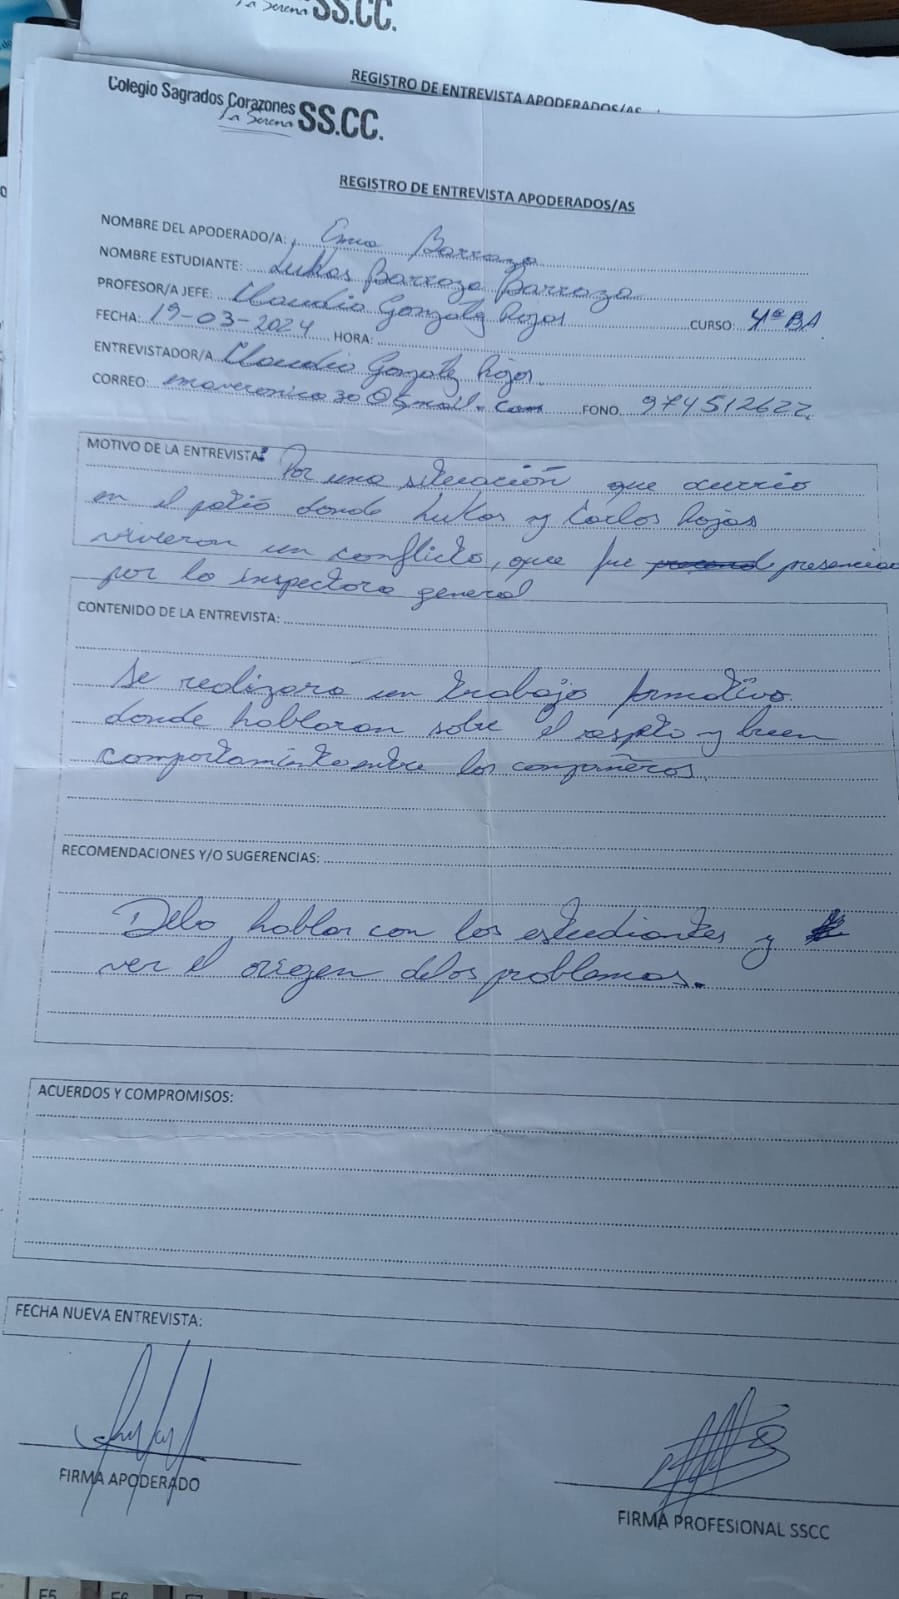 La Serena SS.CC.
REGISTRO DE ENTREVISTA APODERADOS/AS
Colegio Sagrados Corazones
La Serena SS.CC.
REGISTRO DE ENTREVISTA APODERADOS/AS
NOMBRE DEL APODERADO/A: Ema Barraza
NOMBRE ESTUDIANTE: Lukas Barraza Barraza
PROFESOR/A JEFE: Claudio Gonzalez Rojas CURSO: 4º BA
FECHA: 19-03-2024 HORA:
ENTREVISTADOR/A Claudio Gonzalez Rojas.
CORREO: emaveronica30@gmail.com FONO 974512622
MOTIVO DE LA ENTREVISTA: Por una situación que ocurrio
en el patio donde Lukas y Carlos Rojas
vivieron un conflicto, que fue presencia
por la inspectora general
CONTENIDO DE LA ENTREVISTA:
Se realizara un trabajo formativo.
donde hablaran sobre el respeto y buen
comportamiento entre los compañeros.
RECOMENDACIONES Y/O SUGERENCIAS:
Debo hablar con los estudiantes y
ver el origen de los problemas.
ACUERDOS Y COMPROMISOS:
FECHA NUEVA ENTREVISTA:
FIRMA APODERADO
FIRMA PROFESIONAL SSCC
F5 F6 F7